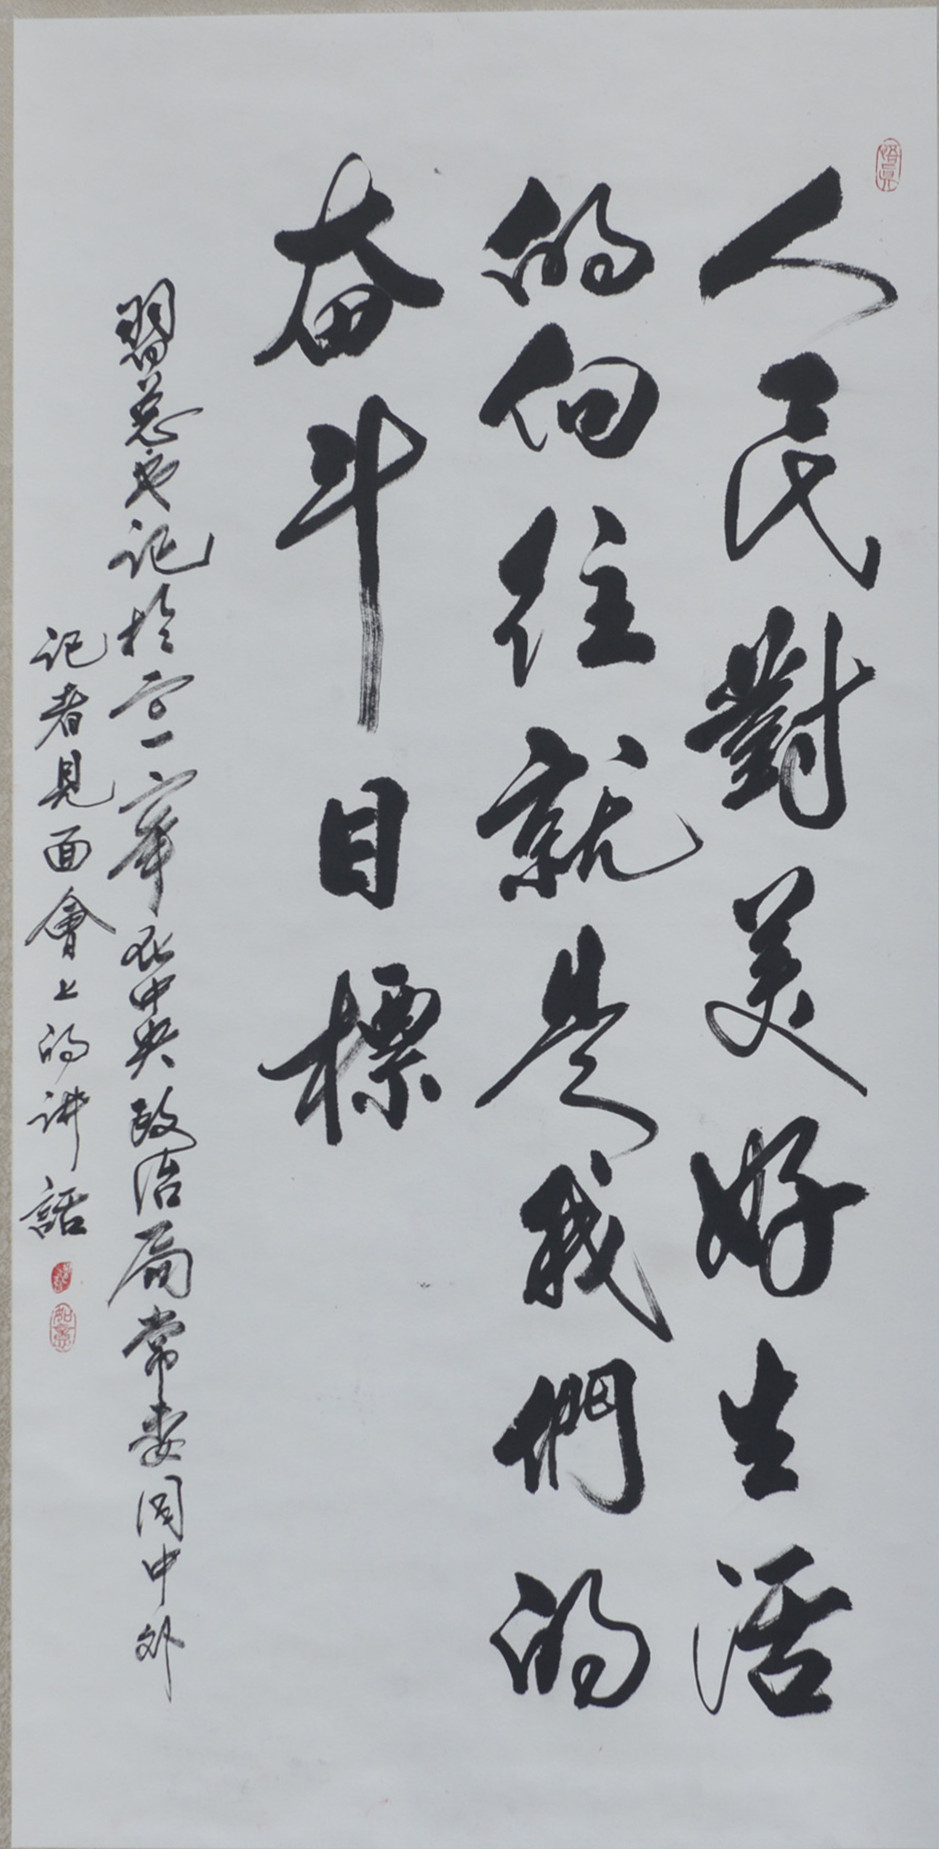 人民對美好生活
的向往就是我們的
奋斗目標
習总书记於二〇一二年在中央政治局常委同中外
記者見面會上的讲話